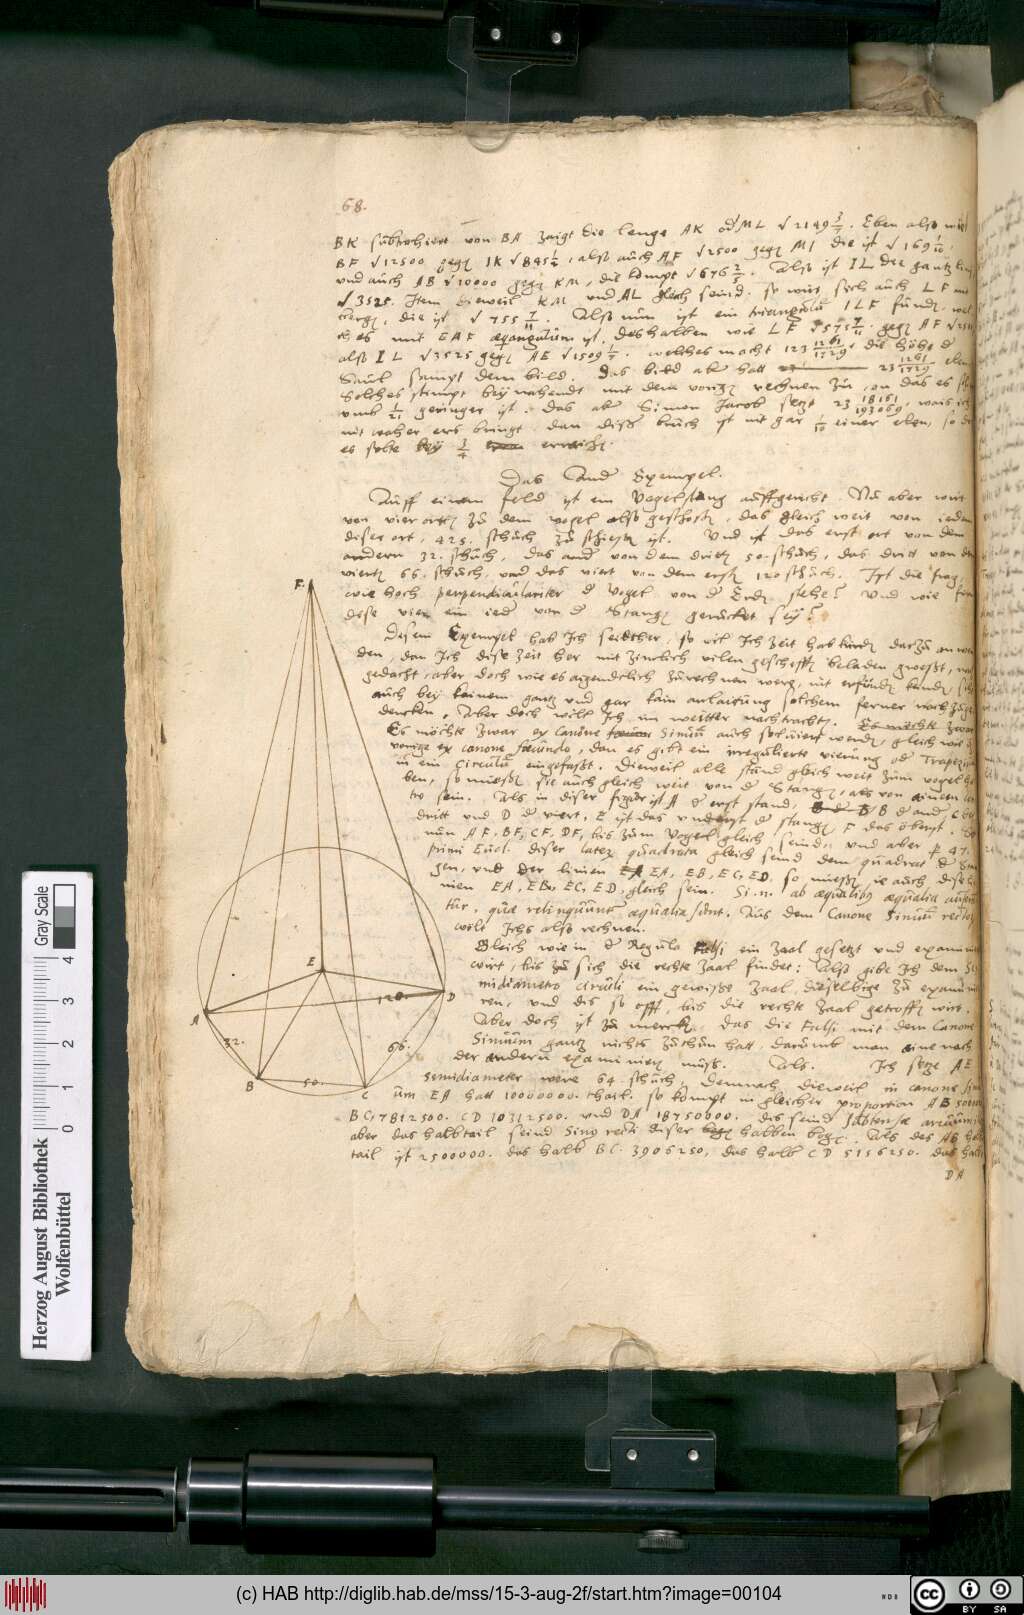 68.
BK subtrahiert von BA zaigt die lenge AK od ML √2149. Eben also
BF √12500 gegen IK √845½, also auch AF √2500 gegen MI die ist √169 1/10,
und auch AB √10000 gegen KM, die kompt √676 2/5. Also ist IL der gantz
√3525. Item dieweil KM und AL gleich seind. so wirt sich auch LF mit
die ist √755 7/11. Also nun ist ein triangulum ILF
ches mit EAF æquiangulum ist, deshalben wie LF gegen AF
also IL √3525 gegen AE √1509 1/7. welches macht 123 1261/1729, die höhe
Saul sampt dem bild. das bild aber hatt 23 1261/1729
Solches stimpt bey nahendt mit dem vorigen rechnen zu, on das es
umb 1/21 geringer ist. das aber Simon Jacob setzt 23 18161/193069, wais ich
nit waher ers bringt. dan diser bruch ist nit gar 1/10 einer elen, so
es solte bey 3/4 erraichen
Das Ander Exempel.
Auff einem feld ist ein Vogelstang auffgericht. Nu aber wirt
von vier orten zu dem vogel also geschossen, das gleich weit von iedem
diser ort, 425. schuch zu schiessen ist. Und ist das erst ort von dem
andern 32. schuch, das ander von dem dritten 50. schuch, das dritt von dem
vierten 66. schuch, und das viert von dem ersten 120 schuch. Ist die frag,
wie hoch perpendiculariter der Vogel von der Erden stehe? Und wie
dise vier ein ieder von der Stangen geruckt sey?
Disem Exempel hab Ich seidther, so vil Ich Zeit hab
den, dan Ich dise Zeit her mit zimlich vilen geschefften beladen gwest,
gedacht, aber doch wie es aigendtlich zu rechnen were, nit erfinden kunden,
auch bey keinem gantz und gar kain anlaitung solchem ferner nach zu
dencken. Aber doch wil Ich im weitter nachtrachten. Es mechte zwar
Es möchte zwar ex Canone Sinuum auch solviert werden gleich wie
vorige ex canone secundo, dan es gibt ein irregulierte vierung oder Trapezium
in ein Circulum eingefasst. Dieweil alle ständ gleich weit zum vogel
ben, so muessen sie auch gleich weit von der Stangen, als von einem
tro sein. Als in diser figur ist A der erst stand, B der ander, C
dritt und D der viert, E ist das underst der stangen F das oberst.
nun AF, BF, CF, DF, bis zum Vogel gleich seind, und aber per 47.
primi Eucl. diser latera quadrata gleich seind dem quadrat der
gen, und der linien EA, EB, EC, ED, so muessen ie auch dise
nien EA, EB, EC, ED, gleich sein. Si. n. ab æqualibus æqualia
tur, quæ relinquuntur æqualia sunt. Aus dem Canone Sinuum rectorum
wil Ichs also rechnen.
Gleich wie in der Regula Falsi ein Zaal gesetzt und examiniert
wirt, bis zu sich die rechte Zaal findet: Also gibe Ich dem
midiametro circuli ein gewisse Zaal, dieselbige zu examinie
ren, und dis so offt, bis die rechte Zaal getroffen wirt.
Aber doch ist zu mercken, das die Falsi mit dem Canone
Sinuum gantz nichts zuthun hatt, darumb man eine nach
der andern examinieren muss. Als. Ich setze AE
semidiameter were 64. schuch, demnach dieweil in canone
um EA hatt 10000000. thail. so kompt in gleicher proportion AB 5000000
BC 7812500. CD 10312500. und DA 18750000. dis seind subtensæ arcuum,
aber das halbtail seind Sinus recti diser halben bogen. Als des AB halb
tail ist 2500000. das halb BC. 3906250, das halb CD 5156250. das halb
DA
F
E
A
B
C
D
32.
50.
66.
120.
Herzog August Bibliothek
Wolfenbüttel
0 1 2 3 4
Gray Scale
(c) HAB http://diglib.hab.de/mss/15-3-aug-2f/start.htm?image=00104
cc BY SA